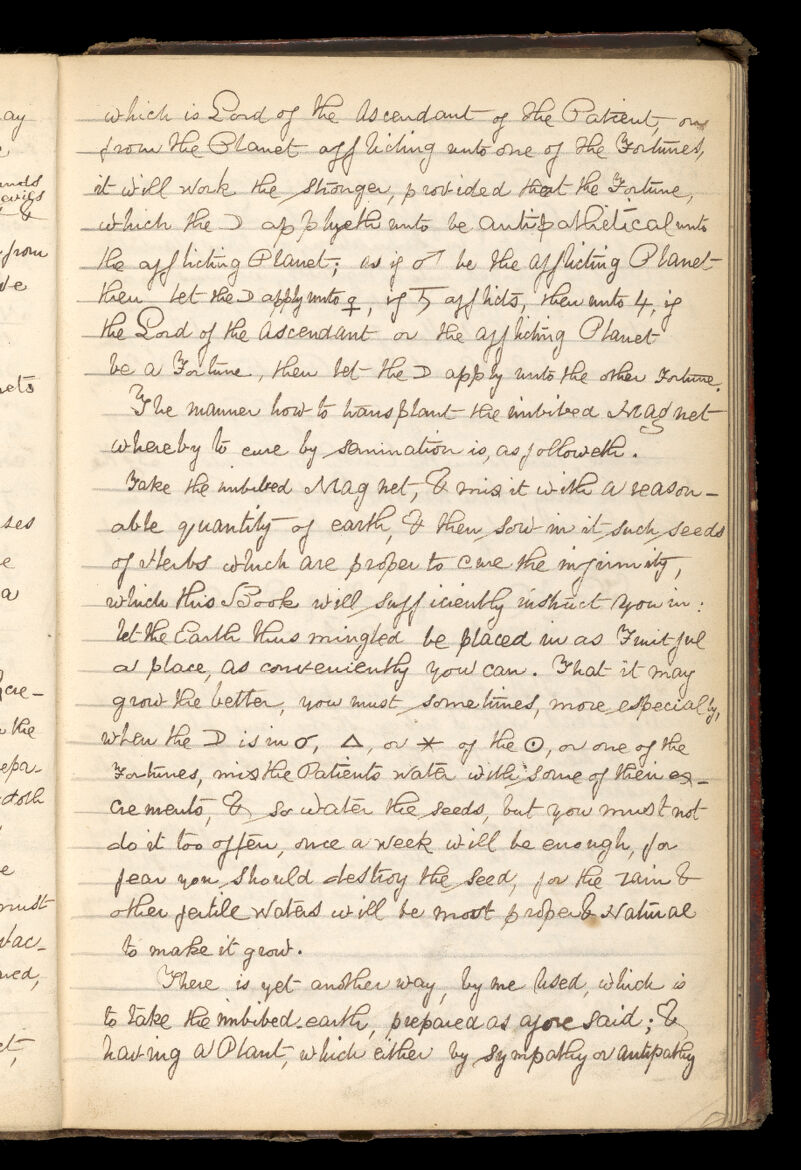 ay
which is Lord of the Ascendant of the Patient, or
from the Planet afflicting unto one of the Fortunes,
it will work the stronger, provided that the Fortune,
which the ☽ applyeth unto be antipathetical unto
from
the afflicting Planet; as if ♂ be the afflicting Planet
then let the ☽ apply unto ♀, if ♄ afflicts, then unto ♃, if
the Lord of the Ascendant or the afflicting Planet
be a Fortune, then let the ☽ apply unto the other Fortune.
The manner how to transplant the imbibed Magnet
whereby to cure by semination is, as followeth.
Take the imbibed Magnet, & mix it with a reason-
able quantity of earth, & then sow in it such seeds
of Herbs which are proper to cure the infirmity,
a
which this Book will sufficiently instruct you in:
let the Earth thus mingled be placed in as Fruitful
a place, as conveniently you can. That it may
grow the better, you must sometimes, more especially,
the
when the ☽ is in ☌, △, or ⚹ of the ☉, or one of the
epa-
Fortunes, mix the Patients water with some of their ex-
doth
crements, & so water the seeds, but you must not
do it too often, once a week will be enough, for
fear you should destroy the seed, for the rain &
must
other fertile waters will be most proper & Natural
to make it grow.
There is yet another way, by me Used, which is
to take the imbibed earth, prepared as afore said; &
having a Plant, which either by sympathy or antipathy